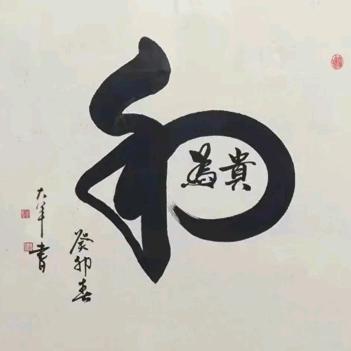 和
為貴
癸卯春
大羊書